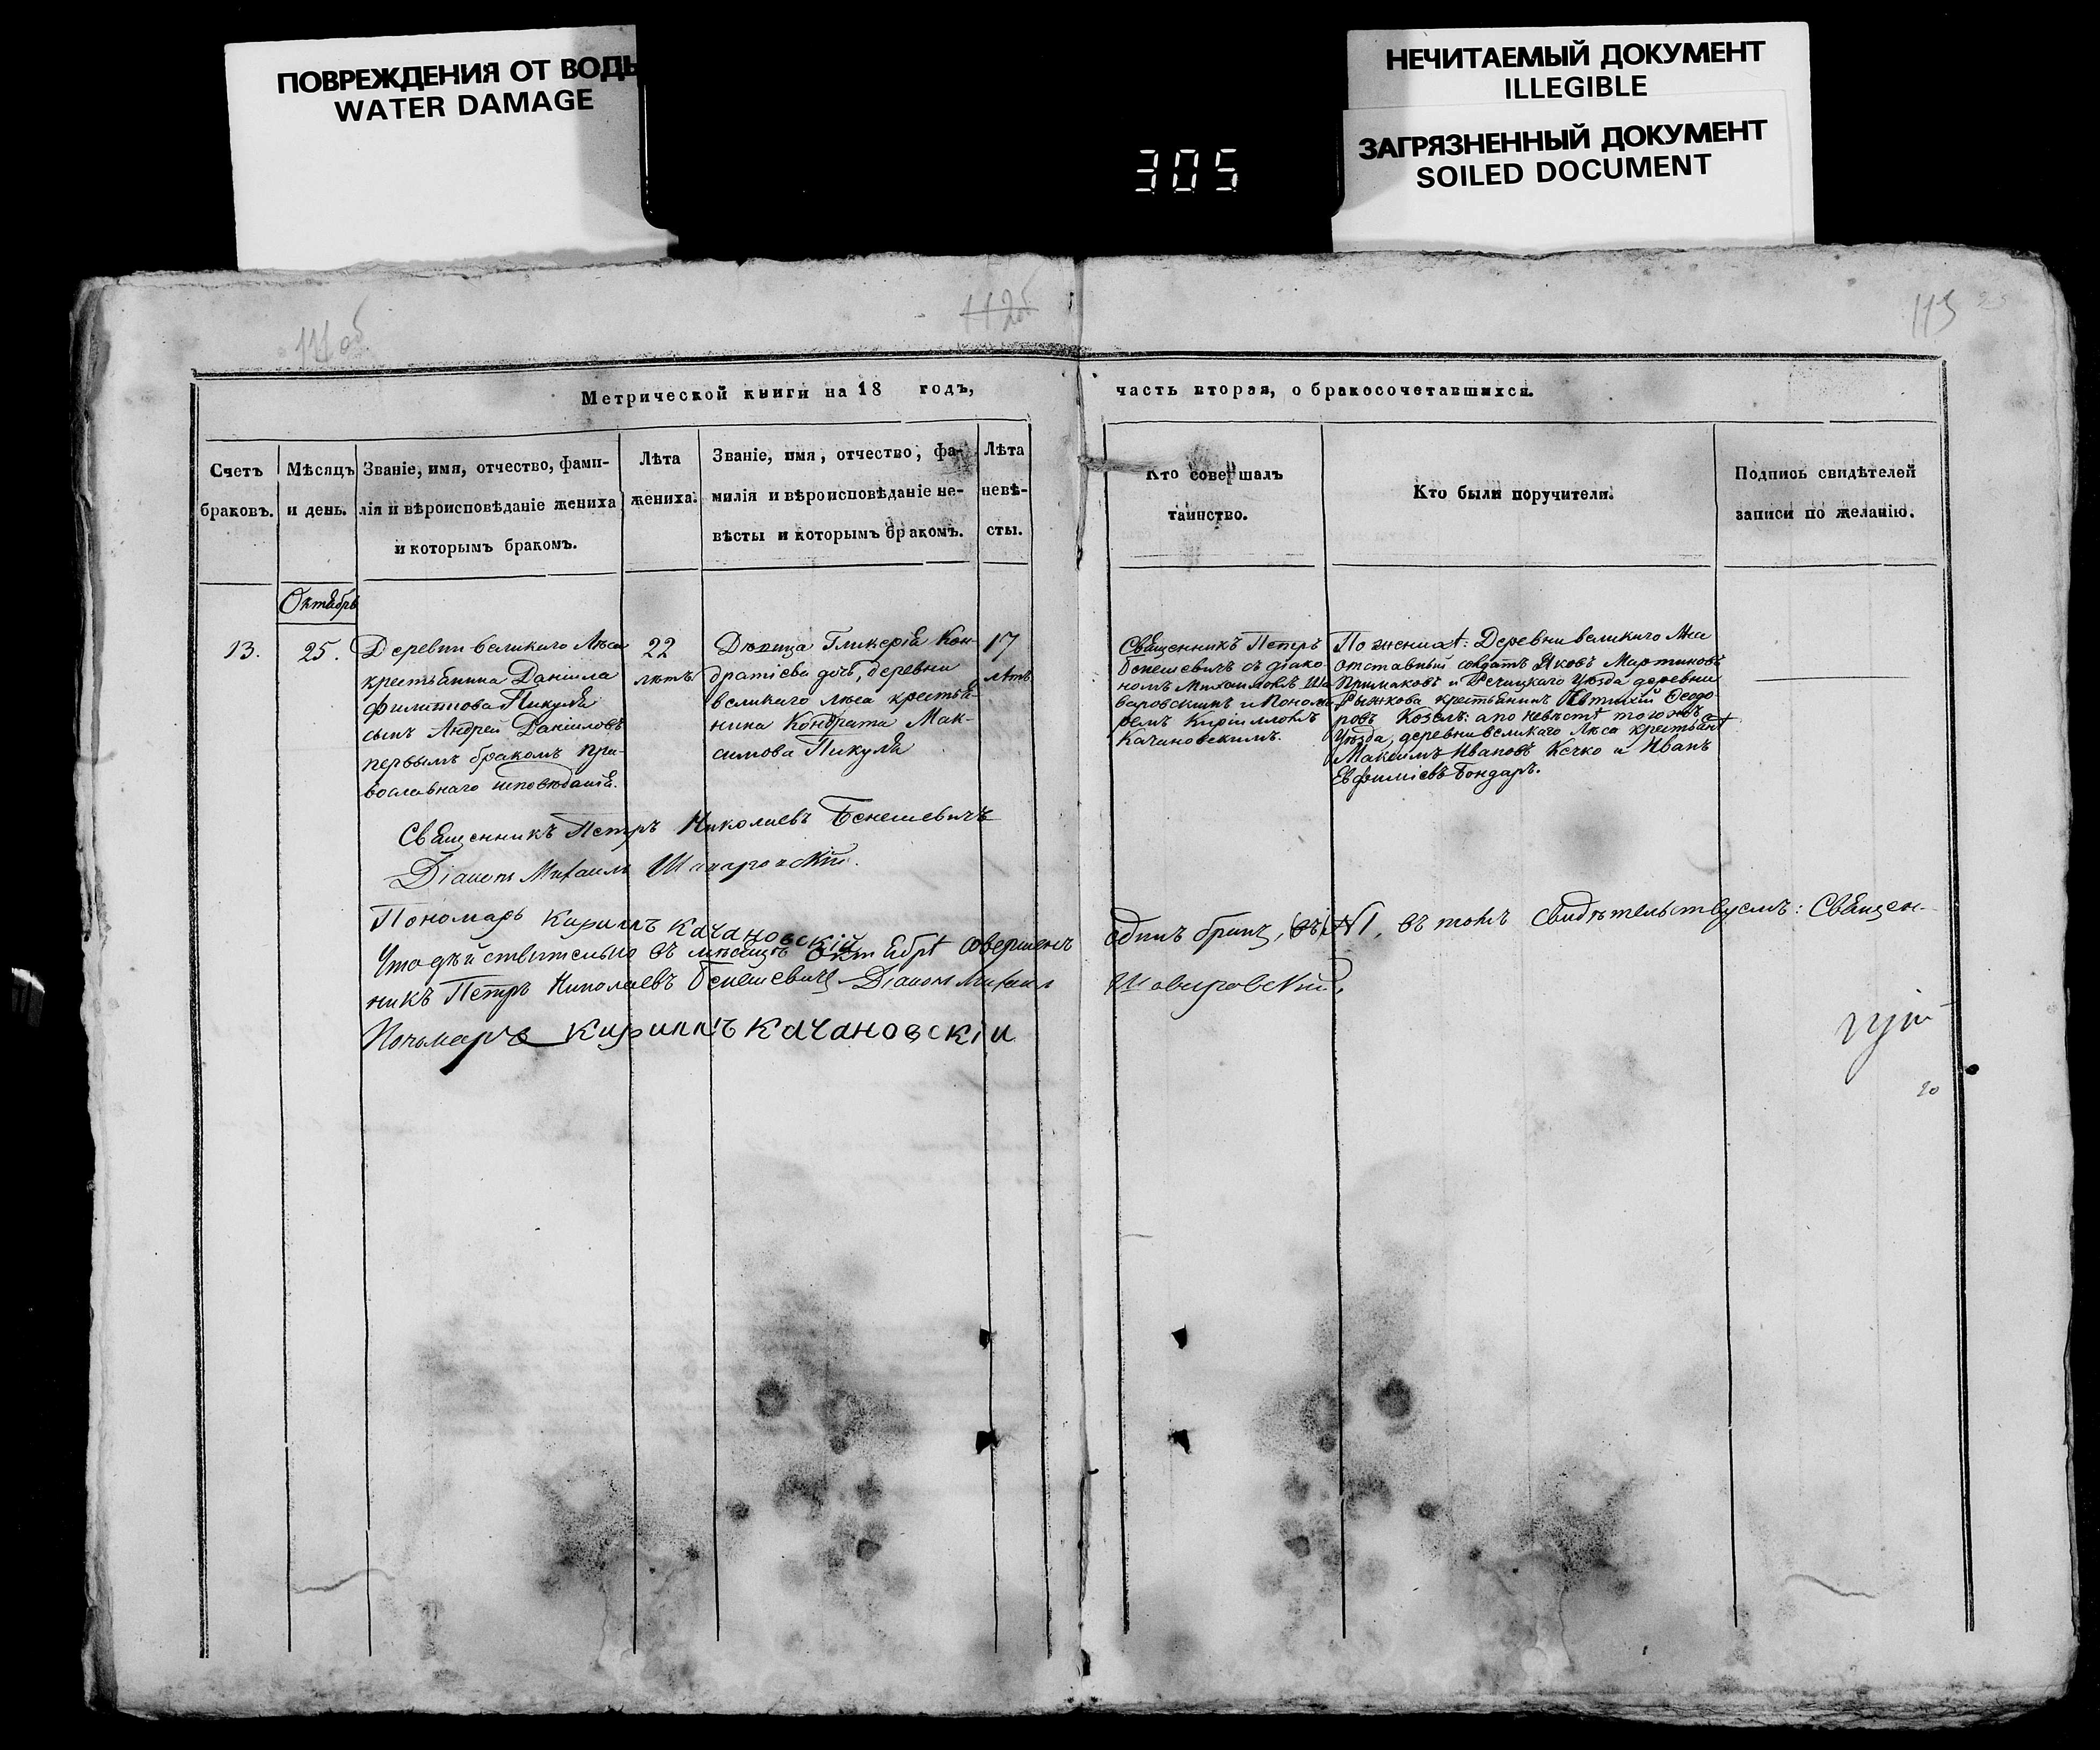 ПОВРЕЖДЕНИЯ ОТ ВОДЫ
WATER DAMAGE
305
НЕЧИТАЕМЫЙ ДОКУМЕНТ
ILLEGIBLE
ЗАГРЯЗНЕННЫЙ ДОКУМЕНТ
SOILED DOCUMENT
111 об
112об
113
Метрической книги на 18 годъ,
часть вторая, о бракосочетавшихся.
Счетъ
браковъ.
Мѣсяцъ
и день.
Званіе, имя, отчество, фами-
лія и вѣроисповѣданіе жениха
и которымъ бракомъ.
Лѣта
жениха.
Званіе, имя, отчество, фа-
милія и вѣроисповѣданіе не-
вѣсты и которымъ бракомъ.
Лѣта
невѣ-
сты.
Кто совершалъ
таинство.
Кто были поручители.
Подпись свидѣтелей
записи по желанію.
Октябрь
13.
25.
Деревни великаго Лѣса
крестьянина Даніила
Филиппова Пикуля
сынъ Андрей Даніиловъ
первымъ бракомъ пра-
вославнаго исповѣданія.
22
лѣтъ
Дѣвица Гликерія Кон-
дратіева дочь, деревни
великаго лѣса крестья-
нина Кондрата Мак-
симова Пикуля
17
лѣтъ
Священникъ Петръ
Бенешевичъ съ діако-
номъ Михаиломъ Ша-
варовскимъ и Понома-
ремъ Кирилломъ
Качановскимъ.
По женихѣ: Деревни великаго Лѣса
отставный солдатъ Яковъ Мартиновъ
Примаковъ и Речицкаго Уѣзда деревни
Рыжкова крестьянинъ Евтихій Ѳеодо
ровъ Козелъ: а по невѣстѣ тогожъ
Уѣзда, деревни великаго Лѣса крестьянѣ
Максимъ Ивановъ Кечко и Иванъ
Евфиміевъ Бондарь.
Священникъ Петръ Николаевъ Бенешевичъ
Діаконъ Михаилъ Шаваровскій.
Пономарь Кириллъ Качановскій
Что дѣйствительно въ мѣсяцѣ Октябрѣ совершенъ
одинъ бракъ, №1, въ томъ свидѣтельствуемъ: Священ-
никъ Петръ Николаевъ Бенешевичъ Діаконъ Михаилъ
Шаваровскій,
Пономарь Кириллъ Качановскіи